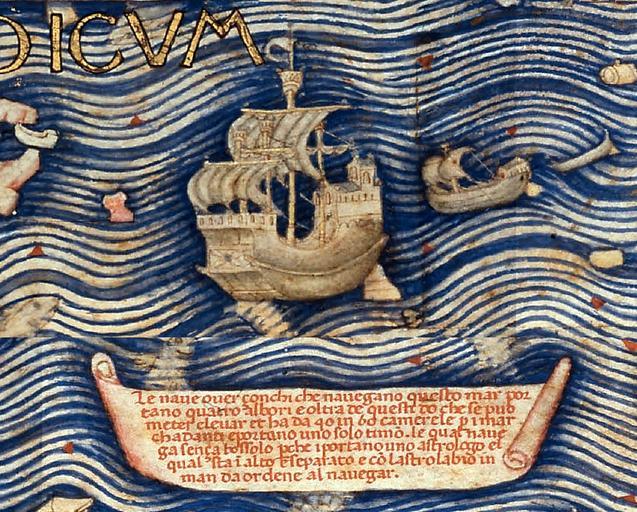 DICVM
Le naue ouer çonchi che nauegano questo mar por
tano quatro albori e oltra de questi do che se puo
meter e leuar et ha da 40 in 60 camerele p i mar
chadanti e portano uno solo timō. le qual naue
ga sença bossolo pche i portano uno astrologo el
qual sta i alto e separato e cō lastrolabio in
man da ordene al nauegar.